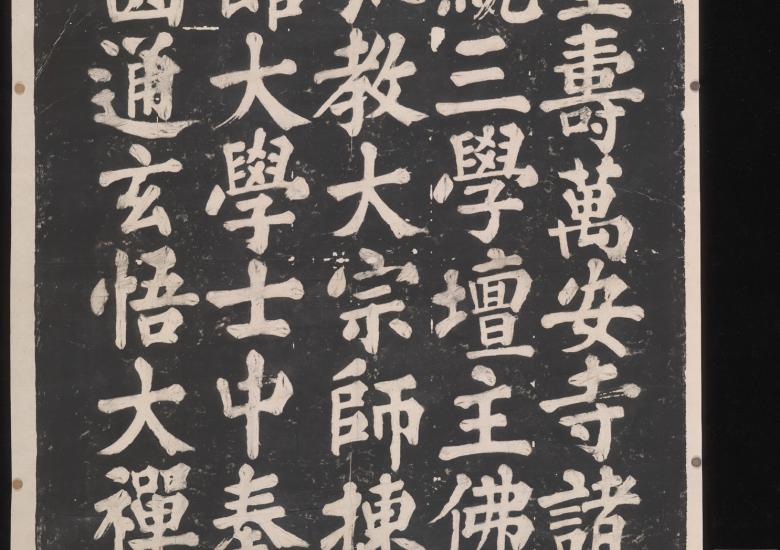 壽萬安寺諸
統三學壇主佛
教大宗師揀
大學士中奉
通玄悟大禪